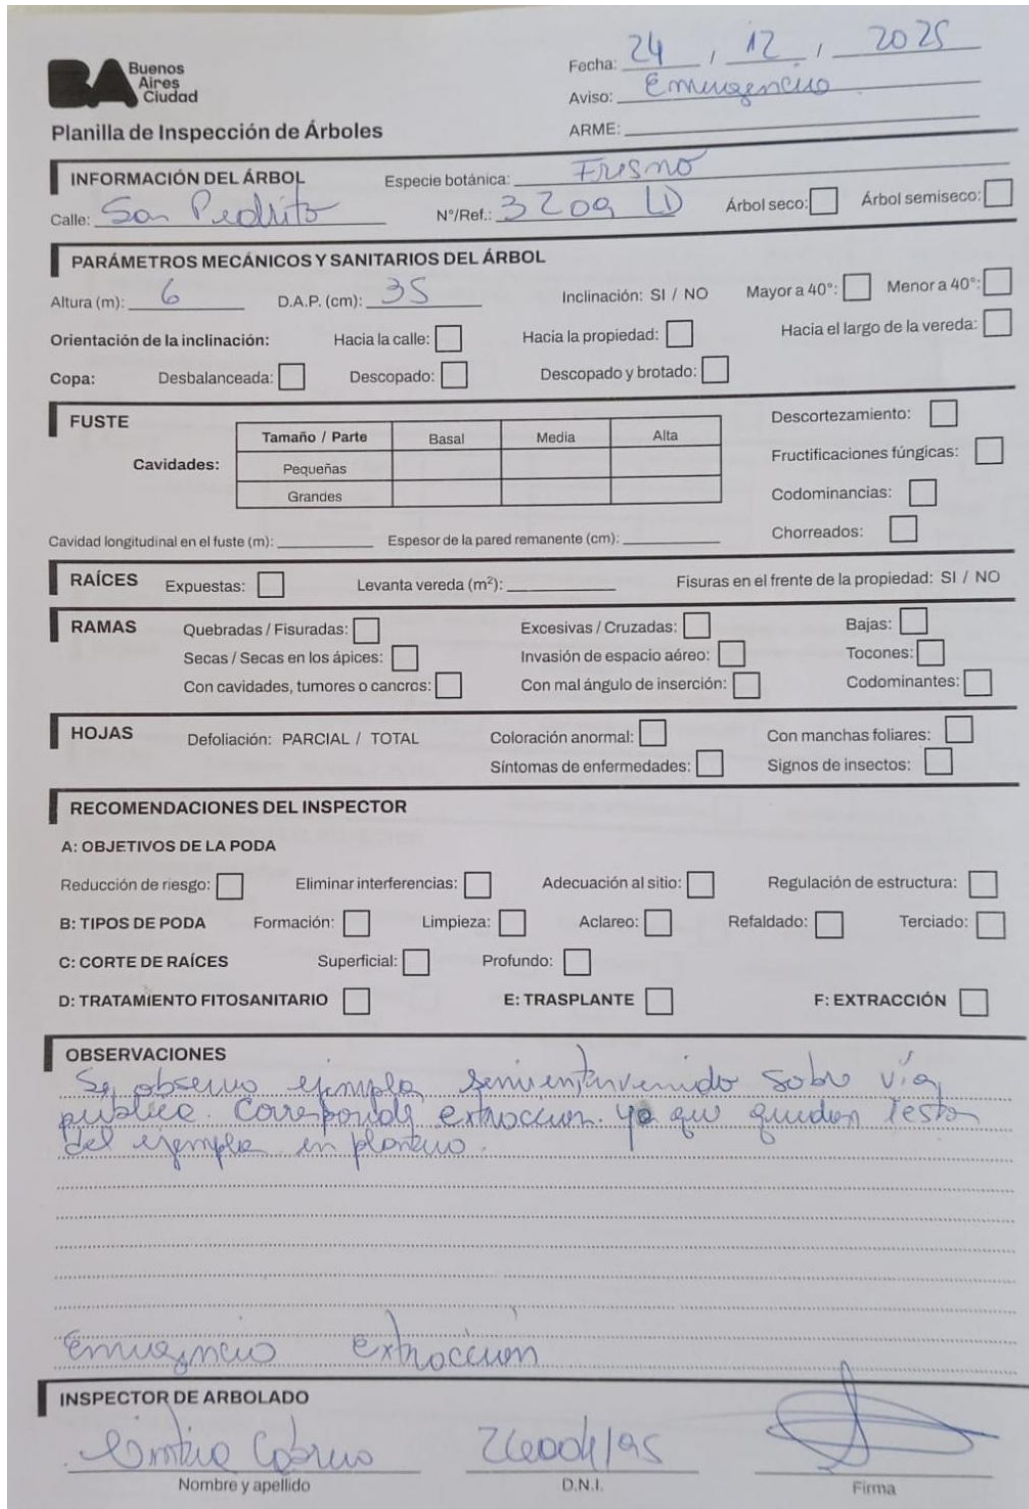 BA Buenos Aires Ciudad
Fecha: 24 / 12 / 2025
Aviso: Emergencia
ARME:
Planilla de Inspección de Árboles
INFORMACIÓN DEL ÁRBOL Especie botánica: Fresno
Calle: San Pedrito N°/Ref.: 3209 LD Árbol seco: Árbol semiseco:
PARÁMETROS MECÁNICOS Y SANITARIOS DEL ÁRBOL
Altura (m): 6 D.A.P. (cm): 35 Inclinación: SI / NO Mayor a 40°: Menor a 40°:
Orientación de la inclinación: Hacia la calle: Hacia la propiedad: Hacia el largo de la vereda:
Copa: Desbalanceada: Descopado: Descopado y brotado:
FUSTE Descortezamiento:
Tamaño / Parte Basal Media Alta
Cavidades: Pequeñas Fructificaciones fúngicas:
Grandes Codominancias:
Chorreados:
Cavidad longitudinal en el fuste (m): Espesor de la pared remanente (cm):
RAÍCES Expuestas: Levanta vereda (m²): Fisuras en el frente de la propiedad: SI / NO
RAMAS Quebradas / Fisuradas: Excesivas / Cruzadas: Bajas:
Secas / Secas en los ápices: Invasión de espacio aéreo: Tocones:
Con cavidades, tumores o cancros: Con mal ángulo de inserción: Codominantes:
HOJAS Defoliación: PARCIAL / TOTAL Coloración anormal: Con manchas foliares:
Síntomas de enfermedades: Signos de insectos:
RECOMENDACIONES DEL INSPECTOR
A: OBJETIVOS DE LA PODA
Reducción de riesgo: Eliminar interferencias: Adecuación al sitio: Regulación de estructura:
B: TIPOS DE PODA Formación: Limpieza: Aclareo: Refaldado: Terciado:
C: CORTE DE RAÍCES Superficial: Profundo:
D: TRATAMIENTO FITOSANITARIO E: TRASPLANTE F: EXTRACCIÓN
OBSERVACIONES
Se observo ejemplar semientervenido sobre vía
publica. Corresponde extraccion. ya que quedan restos
del ejemplar en plantero.
Emergencia extraccion
INSPECTOR DE ARBOLADO
Nombre y apellido D.N.I. Firma